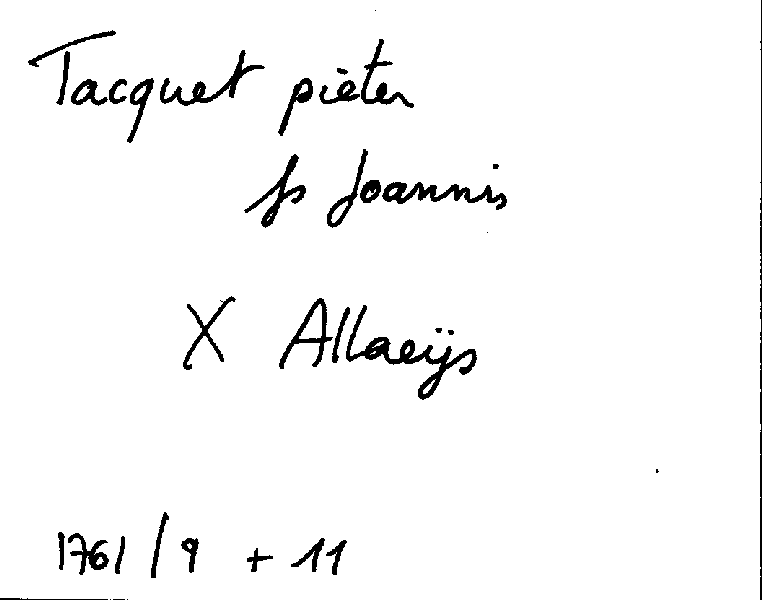 Tacquet pieter
fs Joannis
X Allaeÿs
1761 / 9 + 11